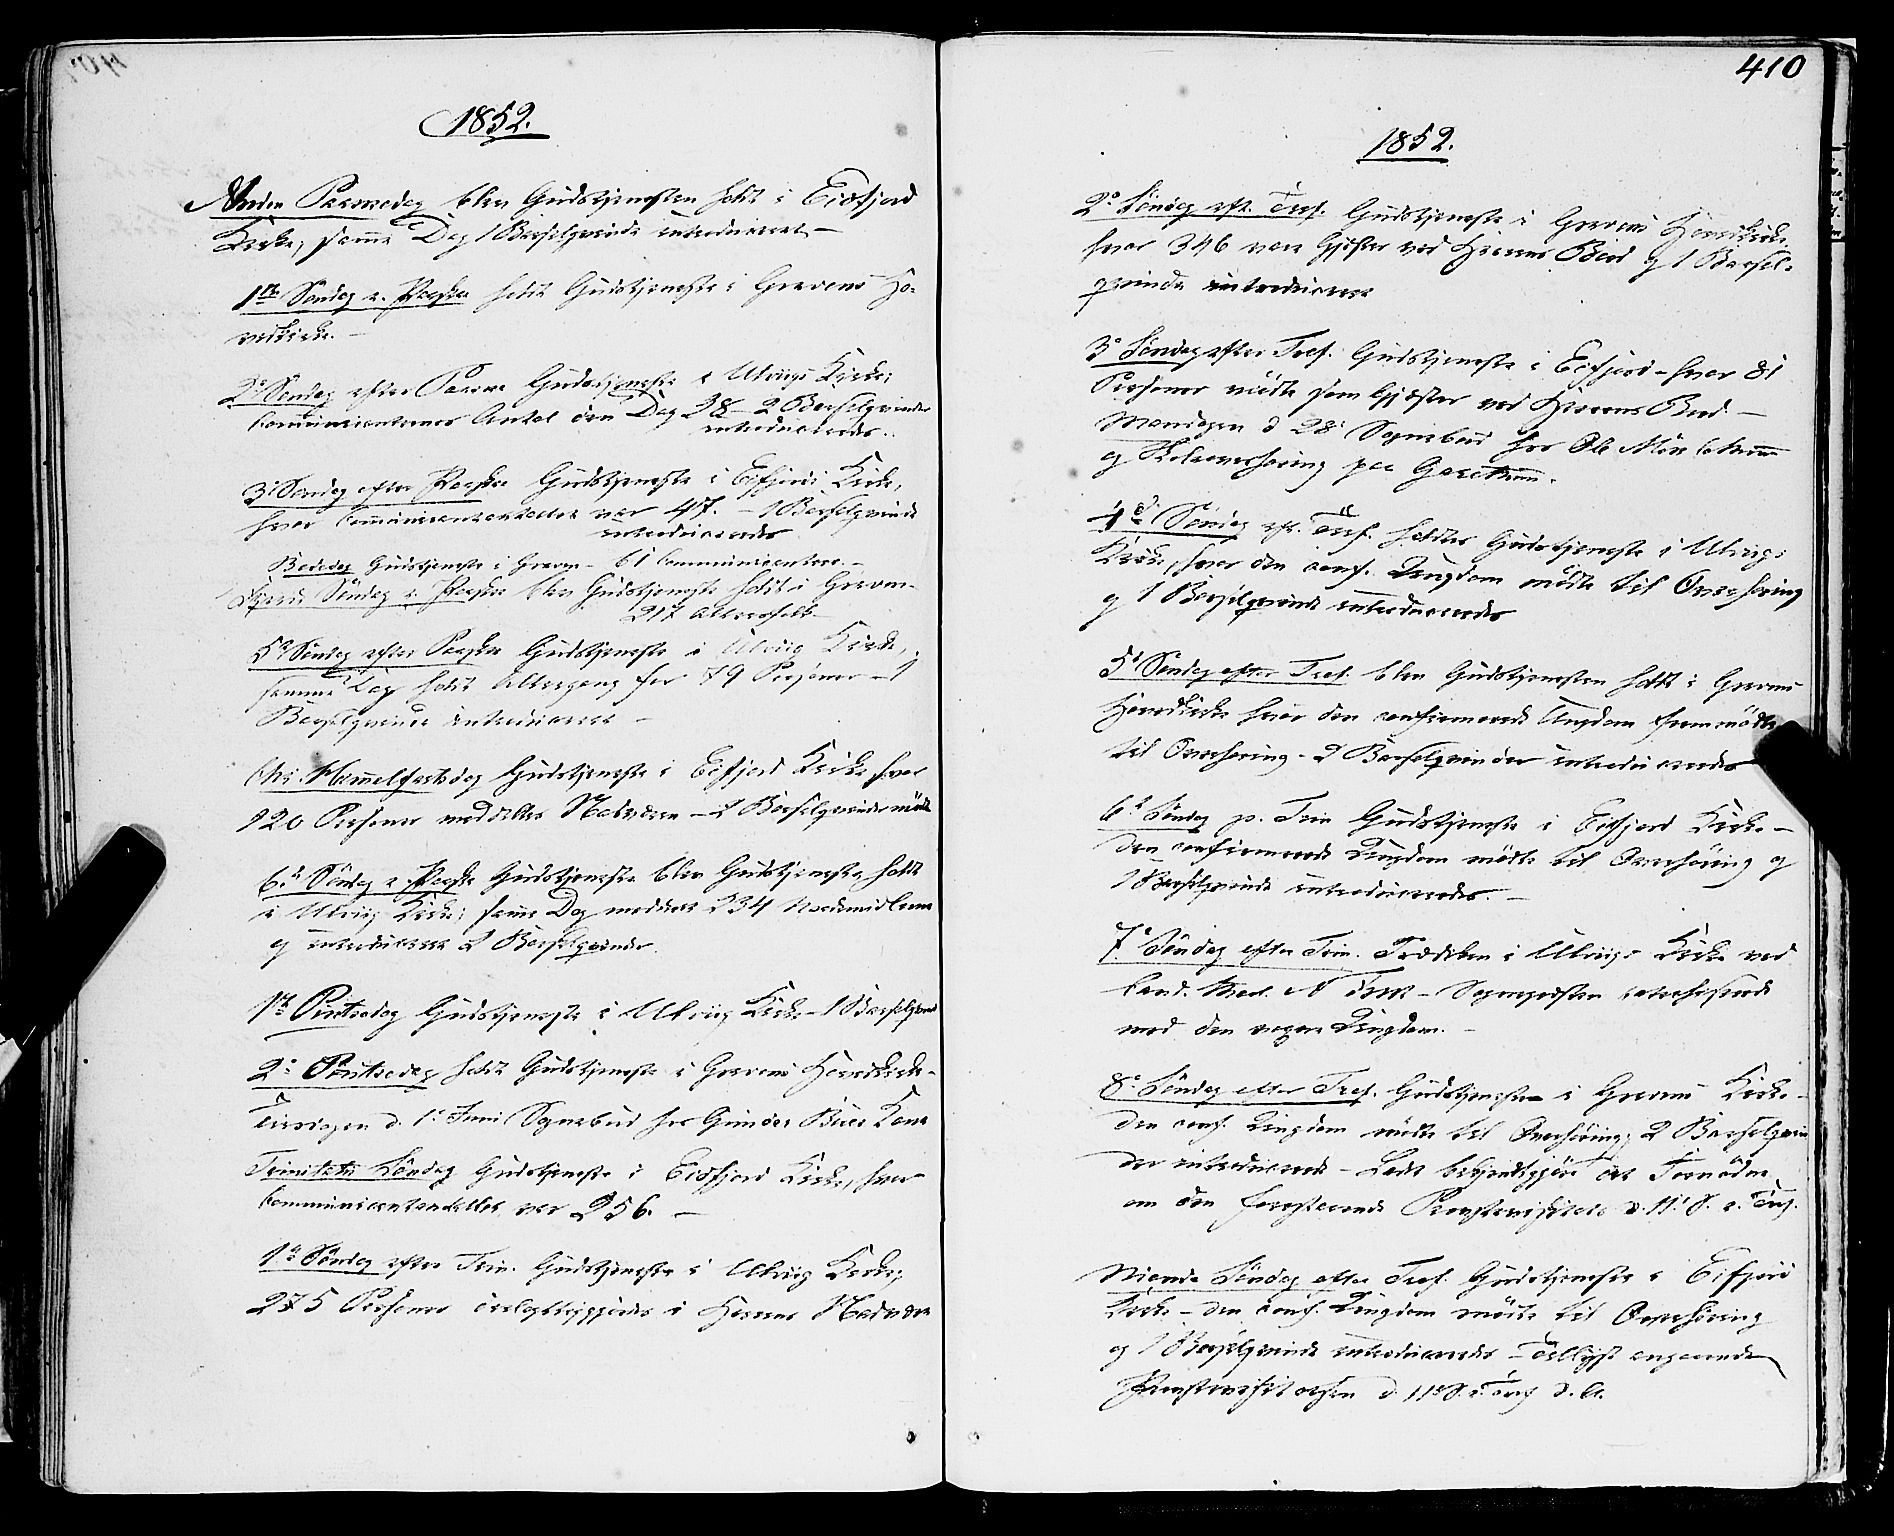 1852.
Anden Paaskedag blev Gudstjenesten holdt i Eidfjord
Kirke, samme Dag 1 Barselqvinde introduceret —
1ste Søndag e. Paaske holdt Gudstjeneste i Gravens Ho-
vedkirke. —
2d Søndag efter Paaske Gudstjeneste i Ulviigs Kirke;
Communicanternes Antal den Dag 28 — 2 Barselqvinder
introduceredes.
3d Søndag efter Paaske Gudstjeneste i Eifjords Kirke,
hvor Communicantantallet var 47. — 1 Barselqvinde
introduceredes
Bededag Gudstjeneste i Graven — 61 Communicantere. —
Fjerde Søndag e. Paaske blev Gudstjeneste holdt i Graven —
217 Altersfolk —
5d Søndag efter Paaske Gudstjeneste i Ulviig Kirke,
samme Dag holdt Altergang for 79 Personer — 1
Barselqvinde introduceret —
Chr. Himmelfartsdag Gudstjeneste i Eifjord Kirke hvor
120 Personer meddeltes Nadveren — 1 Barselqvinde mødte
6d Søndag e. Paaske Gudstjeneste blev Gudstjeneste holdt
i Ulviig Kirke; samme Dag 234
og introduceret 2 Barselqvinder.
1ste Pintsedag Gudstjeneste i Ulviig Kirke — 1 Barselqvind
2d Pintsedag holdt Gudstjeneste i Gravens Hovedkirke —
Tirsdagen d. 1e Juni Sognebud hos Gunder Kone
Trinitatis Søndag Gudstjeneste i Eidfjord Kirke, hvor
Communicantantallet var 256. —
1ste Søndag efter Trin. Gudstjeneste i Ulviig Kirke;
275 Personer i Herrens Nadvere
410
1852.
2d Søndag eft. Tref. Gudstjeneste i Gravens Hovedkirke,
hvor 346 vare Gjester ved Herrens Bord og 1 Barsel-
qvinde introduceret
3d Søndag efter Tref. Gudstjeneste i Eifjord — hvor 81
Personer mødte som Gjester ved Herrens Bord —
Mandagen d 28d Sognebud hos Ole
og paa
4d Søndag eft. Tref. holdtes Gudstjeneste i Ulviigs
Kirke, hvor den conf. Ungdom mødte til Overhøring
og 1 Barselqvinde introduceredes
5d Søndag efter Tref. blev Gudstjenesten holdt i Gravens
Hovedkirke hvor den confirmerede Ungdom fremmødte
til Overhøring — 2 Barselqvinder introduceredes
6d Søndag p. Trin Gudstjeneste i Eifjord Kirke —
den confirmerede Ungdom mødte til Overhøring og
1 Barselqvinde introduceredes. —
7d Søndag efter Trin. Prædiken i Ulviigs Kirke ved
Cand. — Sognepresten catechiserede
med den Ungdom. —
8d Søndag efter Tref. Gudstjeneste i Gravens Kirke —
den conf. Ungdom mødte til Overhøring; 2 Barselqvin
der introducerede — bekjendtgjøre det Fornødne
om den forestaaende Provstevisitats d. 11d S. e. Tref.
Niende Søndag efter Tref. Gudstjeneste i Eifjord
Kirke — den conf. Ungdom mødte til Overhøring
og 1 Barselqvinde introduceredes — angaaende
Provstevisitatsen d. 11d S. e. Tref d. A.